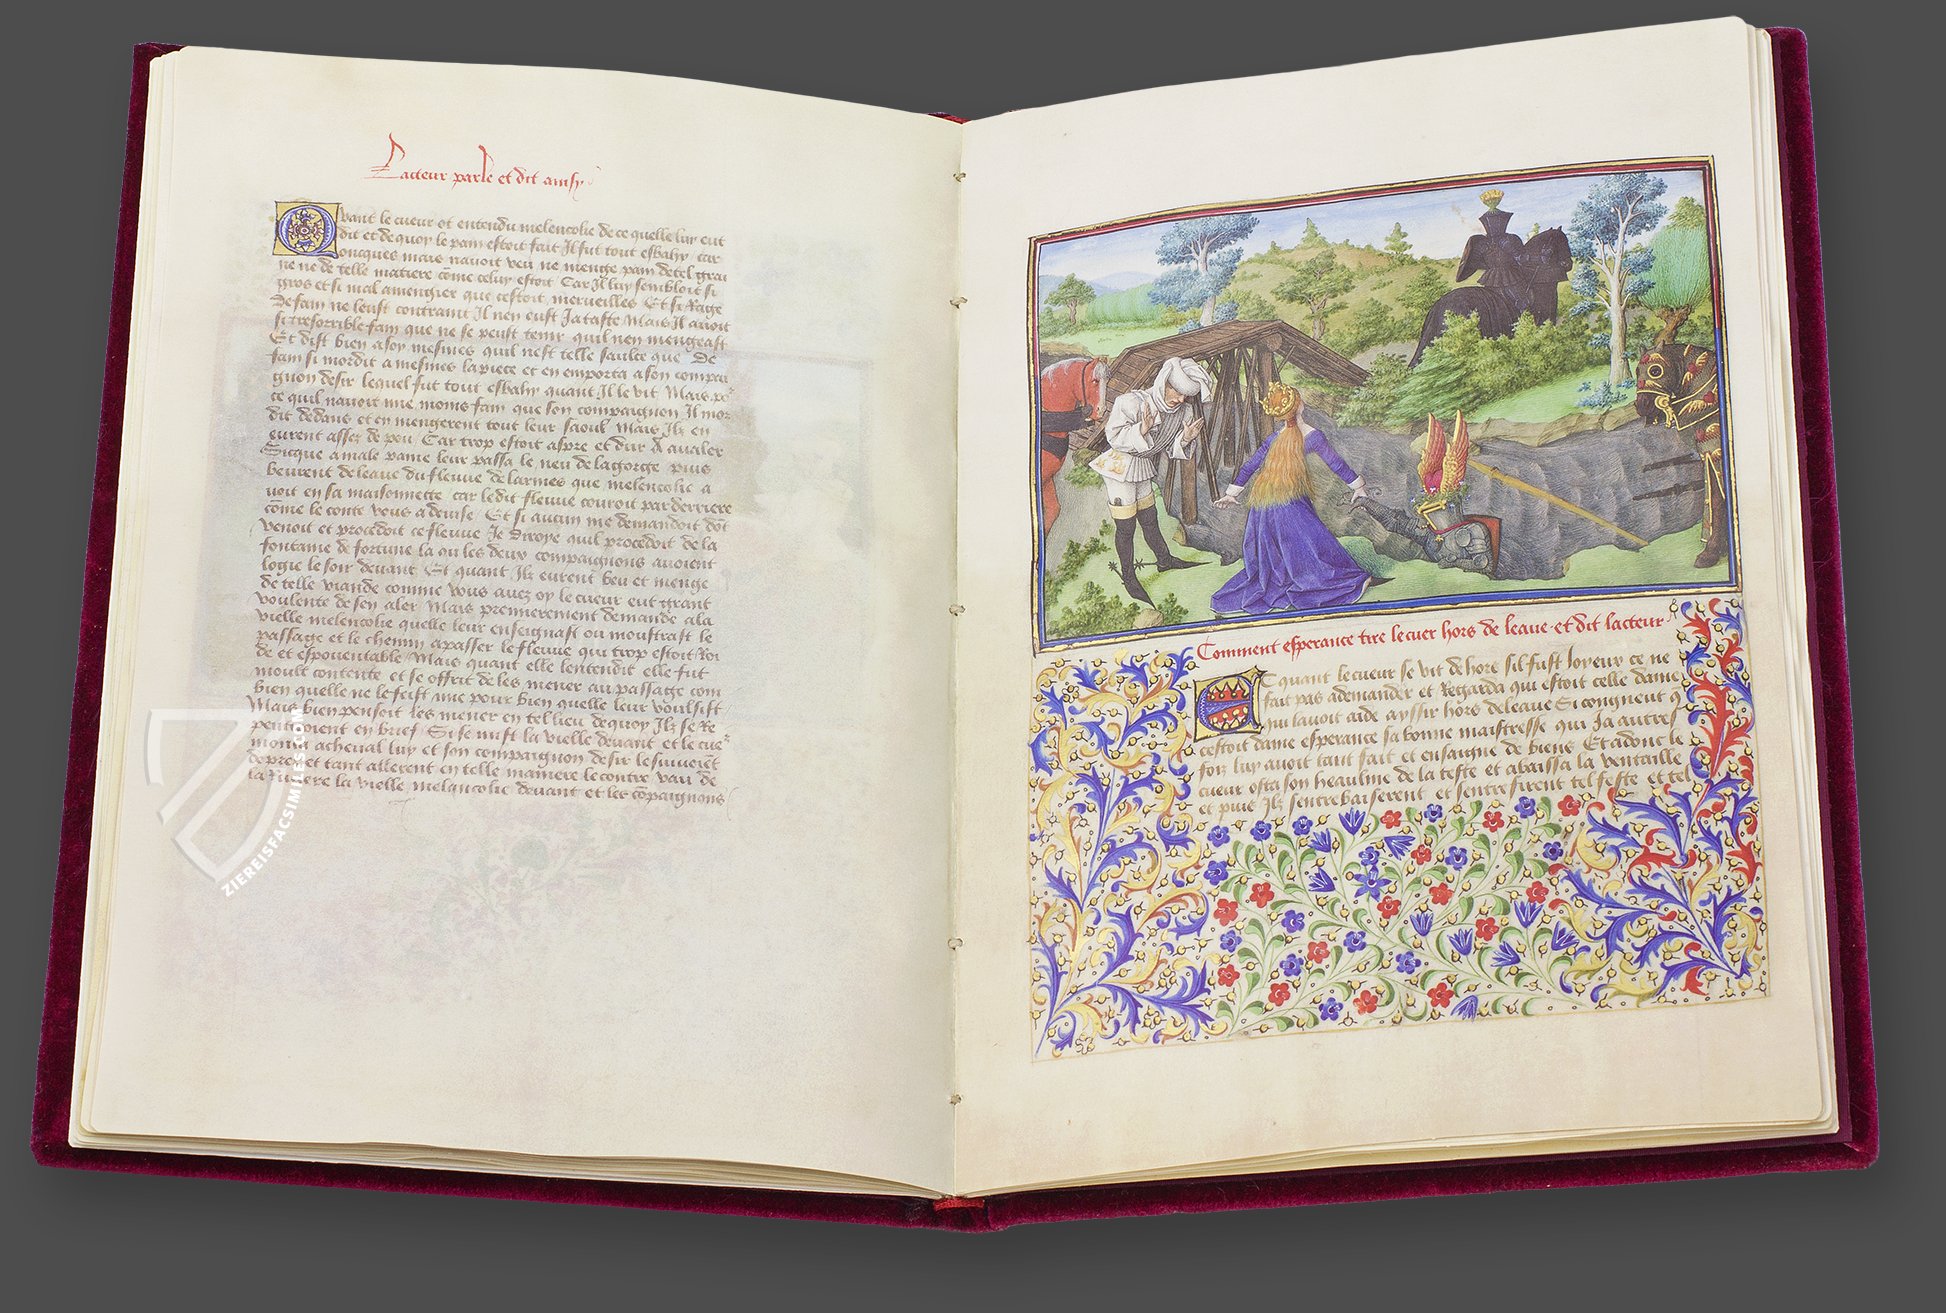 Lacteur parle et dit ainsy
Quant le cueur ot entendu melencolie de ce quelle luy eut
dit et de quoy le pain estoit fait Il fut tout esbahy car
oncques mais navoit veu ne menge pain de tel grai
ne ne de telle matiere cõme celuy estoit Car Il luy sembloit si
gros et si mal amengier que cestoit merveilles Et si Rage
de fain ne leust contraint Il nen eust Ja taste Mais Il avoit
si tresorrible fain que ne se peust tenir quil nen mengeast
Et dist bien a soy mesmes quil nest telle saulce que De
fain si mordit a mesmes la piece et en emporta a son compai
gnon desir lequel fut tout esbahy quant Il le vit Mais po
ce quil navoit mie moins fain que son compaignon Il mor
dit dedans et en mengerent tout leur saoul Mais Ilz en
eurent assez de peu Car trop estoit aspre et dur A avaler
Sicque a male paine leur passa le neu de la gorge puis
beurent de leaue du fleuve de larmes que melencolie a
voit en sa maisonnette car le dit fleuve couroit par derriere
come le conte vous a devise Et si aucun me demandoit dõt
venoit et procedoit ce fleuve Je diroye quil procedoit de la
fontaine de fortune la ou les deux compaignons avoient
logie le soir devant Et quant Ilz eurent beu et menge
de telle viande comme vous avez oy le cueur eut grant
voulente de sen aler Mais premierement demande a la
vielle melencolie quelle leur enseignast ou moustrast le
passage et le chemin a passer le fleuve qui trop estoit Roi
de et espouentable Mais quant elle lentendit elle fut
moult contente et se offrit de les mener au passage com
bien quelle ne le feist mie pour bien quelle leur voulsist
Mais bien pensoit les mener en tel lieu de quoy Ilz se Re
pentiroient en brief Si se mist la vielle devant et le cue
monta acheval luy et son compaignon desir le suivoiẽt
de pres et tant allerent en telle maniere le contre vau de
la Riviere la vielle melancolie devant et les cõpaignons
Comment esperance tire le cuer hors de leaue et dit lacteur
Et quant le cueur se vit dehors sil fust Joyeux ce ne
fait pas ademander et Regarda qui estoit celle dame
qui lavoit aide ayssir hors de leaue Si congneut q
cestoit dame esperance sa bonne maistresse qui Ja autres
foiz luy avoit tant fait et ensaigne de biens Et adont le
cueur osta son heaulme de la teste et abaissa la ventaille
et puis Ilz sentrebaiserent et sentrefirent tel feste et tel
ZIEREISFACSIMILES.COM